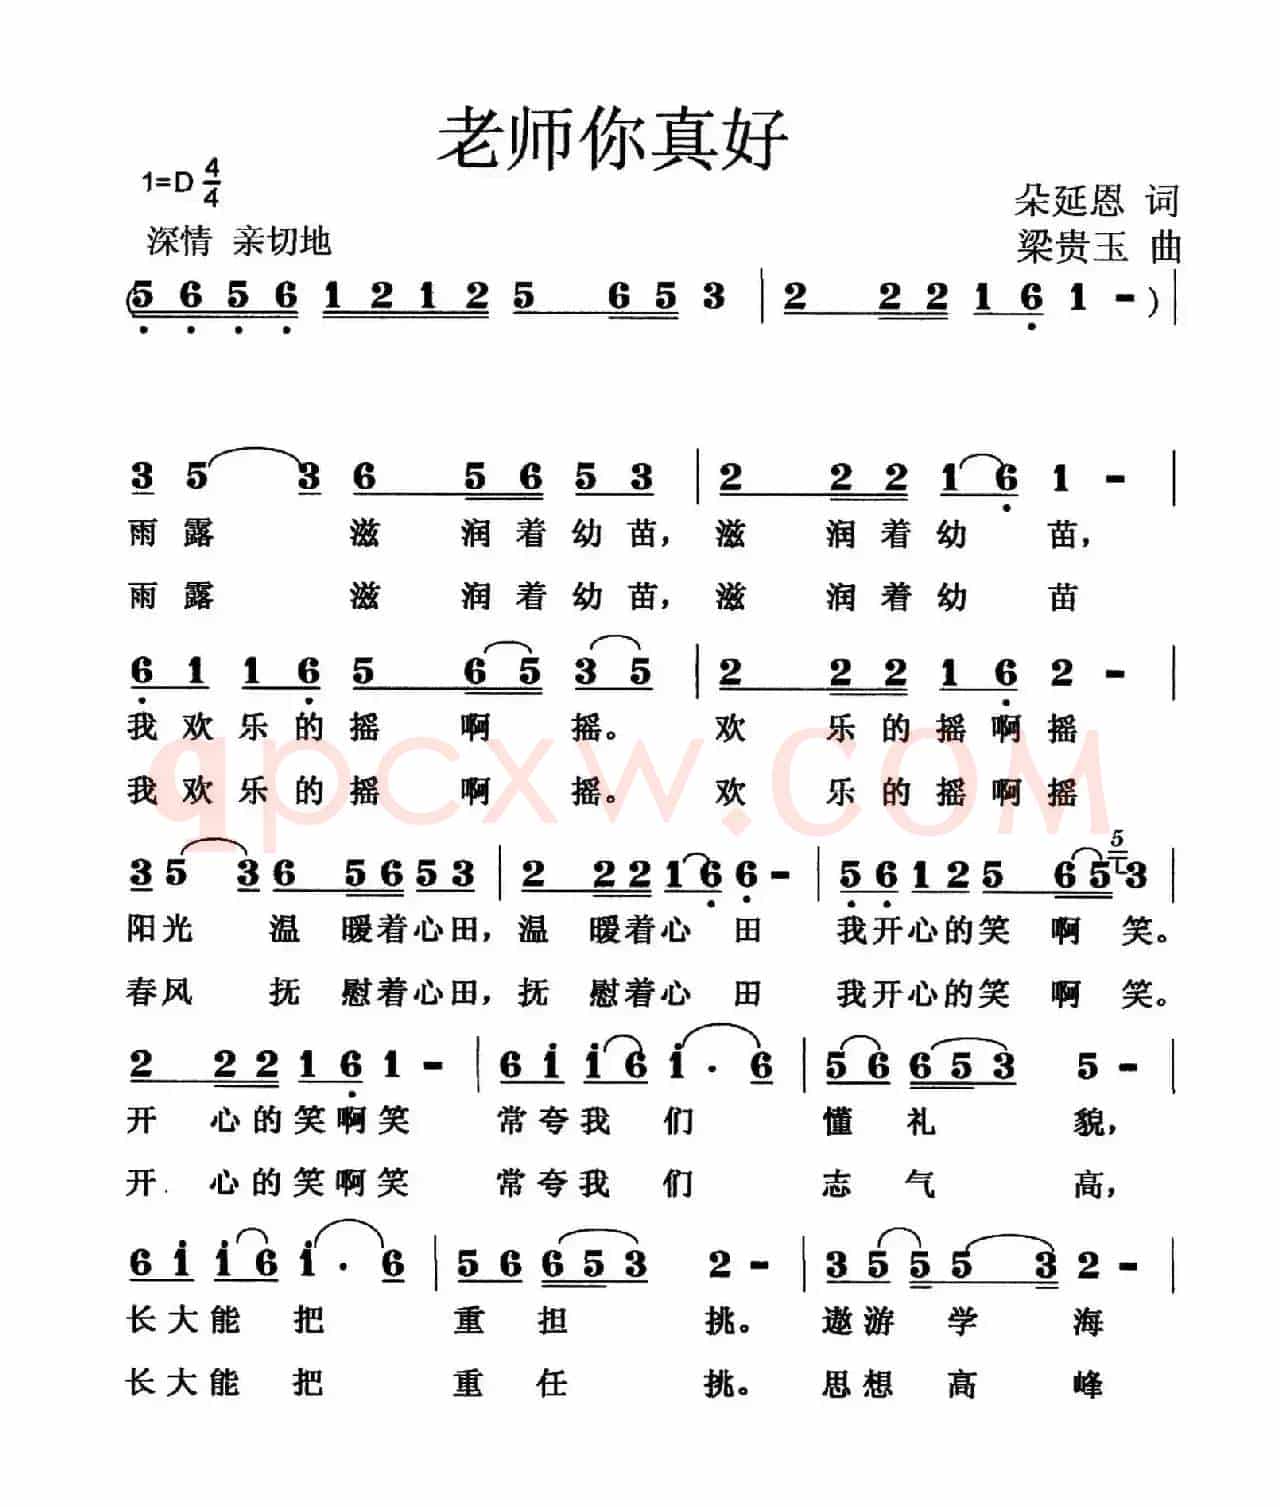 老师你真好
1=D 4/4
朵延恩 词
深情 亲切地
梁贵玉 曲
(5 6 5 6 1 2 1 2 5 6 5 3 | 2 2 2 1 6 1 - ) |
3 5 3 6 5 6 5 3 | 2 2 2 1 6 1 - |
雨露 滋 润着幼苗，滋 润着幼 苗，
雨露 滋 润着幼苗，滋 润着幼 苗
6 1 1 6 5 6 5 3 5 | 2 2 2 1 6 2 - |
我欢乐的摇 啊 摇。 欢 乐的摇啊摇
我欢乐的摇 啊 摇。 欢 乐的摇啊摇
qpcxw.COM
3 5 3 6 5 6 5 3 | 2 2 2 1 6 6 - | 5 6 1 2 5 6 5 5 3 |
阳光 温 暖着心田，温 暖着心 田 我开心的笑 啊 笑。
春风 抚 慰着心田，抚 慰着心 田 我开心的笑 啊 笑。
2 2 2 1 6 1 - | 6 i i 6 i · 6 | 5 6 6 5 3 5 - |
开 心的笑啊笑 常夸我 们 懂 礼 貌，
开 心的笑啊笑 常夸我 们 志 气 高，
6 i i 6 i · 6 | 5 6 6 5 3 2 - | 3 5 5 5 3 2 - |
长大能 把 重 担 挑。 遨游 学 海
长大能 把 重 任 挑。 思想 高 峰